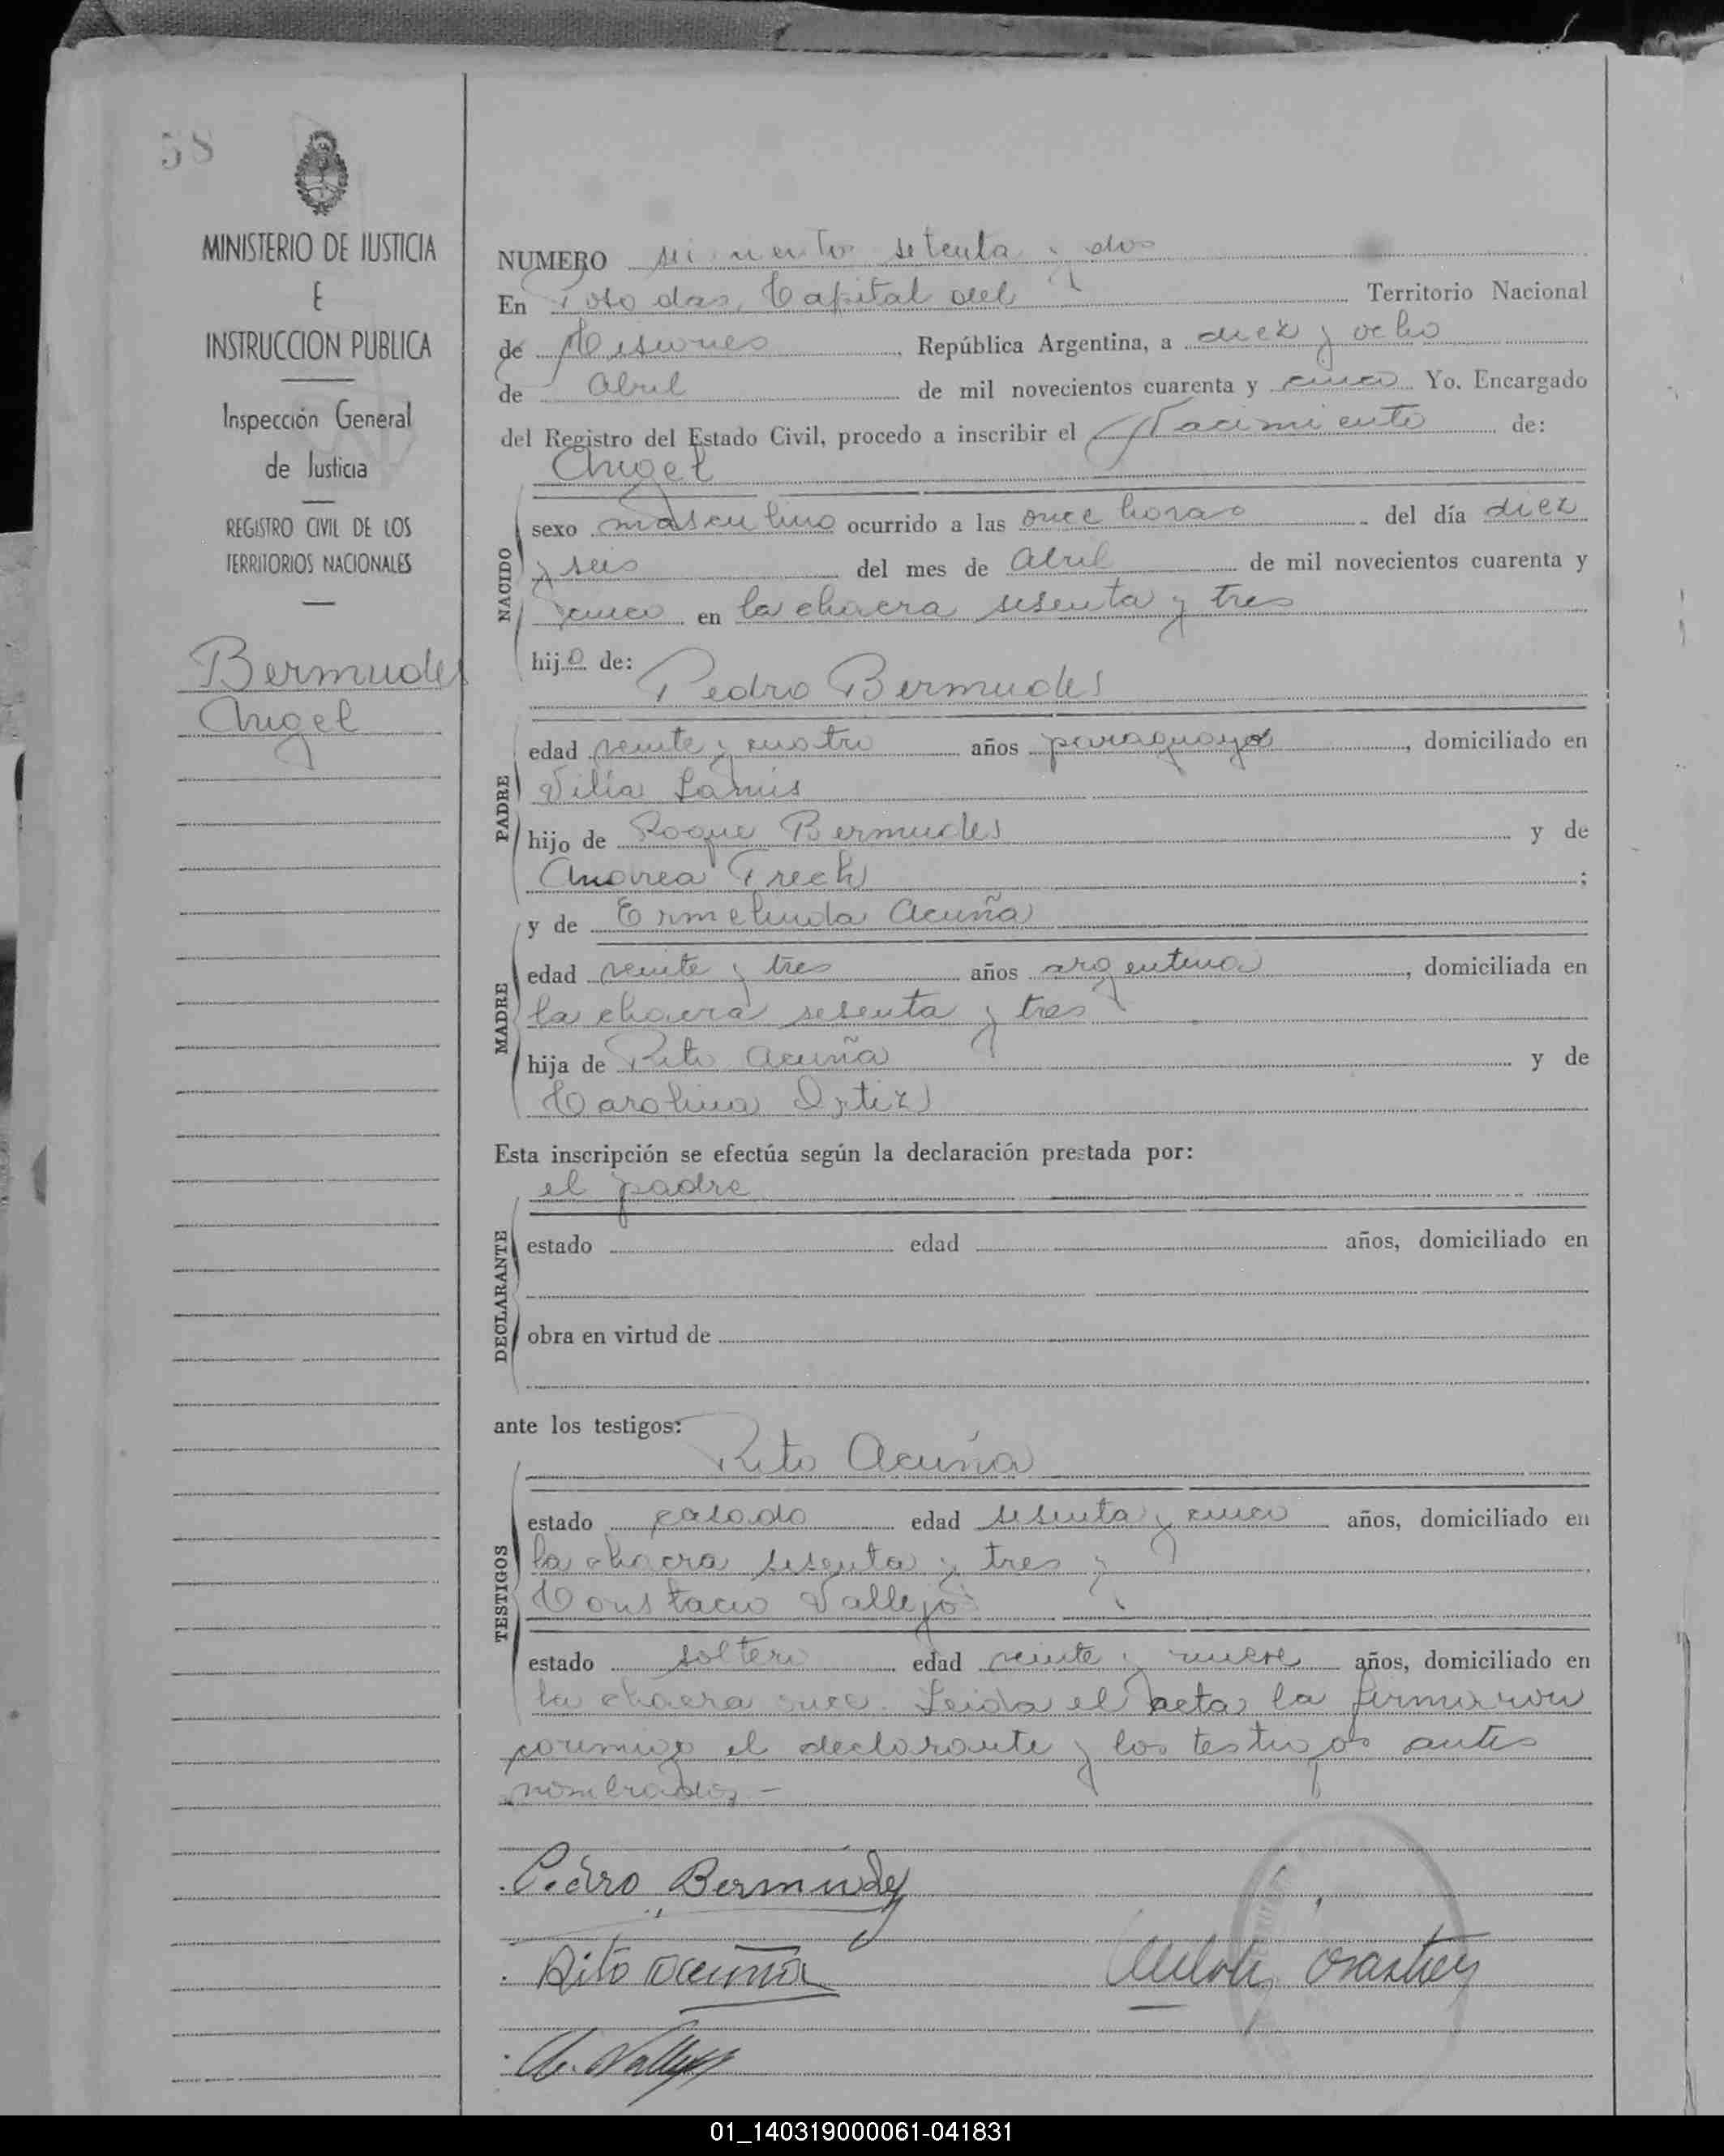 58
MINISTERIO DE JUSTICIA
E
INSTRUCCION PUBLICA
Inspección General
de Justicia
REGISTRO CIVIL DE LOS
TERRITORIOS NACIONALES
Bermudes
Angel
NUMERO setenta y dos
En Posadas, Capital del Territorio Nacional
de Misiones, República Argentina, a diez y ocho
de Abril de mil novecientos cuarenta y cinco Yo, Encargado
del Registro del Estado Civil, procedo a inscribir el Nacimiento de:
Angel
NACIDO
sexo masculino ocurrido a las once horas del día diez
y seis del mes de Abril de mil novecientos cuarenta y
cinco en la chacra sesenta y tres
hijo de:
Pedro Bermudes
PADRE
edad veinte y cuatro años paraguayo, domiciliado en
Villa Lanus
hijo de Roque Bermudes y de
Andrea ;
y de Ermelinda Acuña
MADRE
edad veinte y tres años argentina, domiciliada en
la chacra sesenta y tres
hija de Rito Acuña y de
Carolina Ortiz
Esta inscripción se efectúa según la declaración prestada por:
el padre
DECLARANTE
estado edad años, domiciliado en
obra en virtud de
ante los testigos:
Rito Acuña
TESTIGOS
estado casado edad sesenta y cinco años, domiciliado en
la chacra sesenta y tres y
Constacio Vallejos
estado soltero edad veinte y nueve años, domiciliado en
la chacra once. Leida el acta la firmaron
conmigo el declarante y los testigos antes
nombrados.-
Pedro Bermudez
Rito Acuña
C. Vallejos
01_140319000061-041831